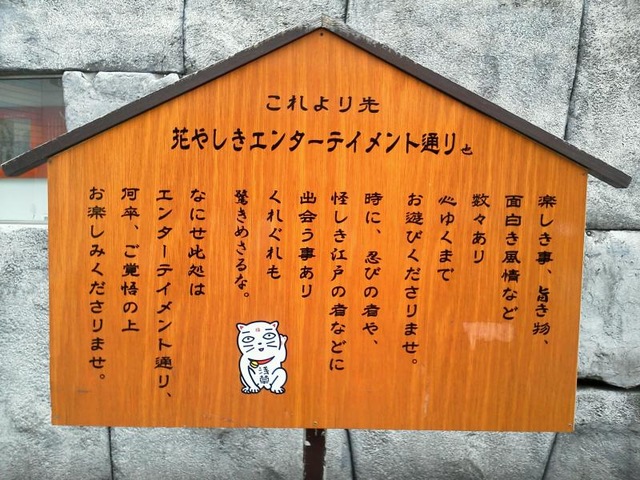 これより先
花やしきエンターテイメント通りと
楽しき事、旨き物、
面白き風情など
数々あり
心ゆくまで
お遊びくださりませ。
時に、忍びの者や、
怪しき江戸の者などに
出会う事あり
くれぐれも
驚きめさるな。
なにせ此処は
エンターテイメント通り、
何卒、ご覚悟の上
お楽しみくださりませ。
浅草